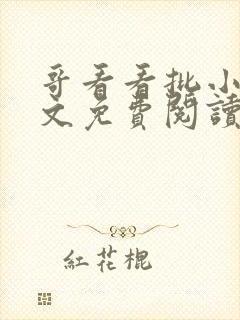 哥看看批小
文免費閱讀
紅花棍